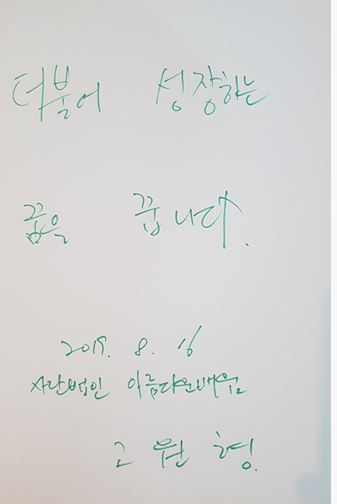 더불어 성장하는
꿈을 꿉니다.
2019. 8. 16
사단법인 아름다운배움
고원형.